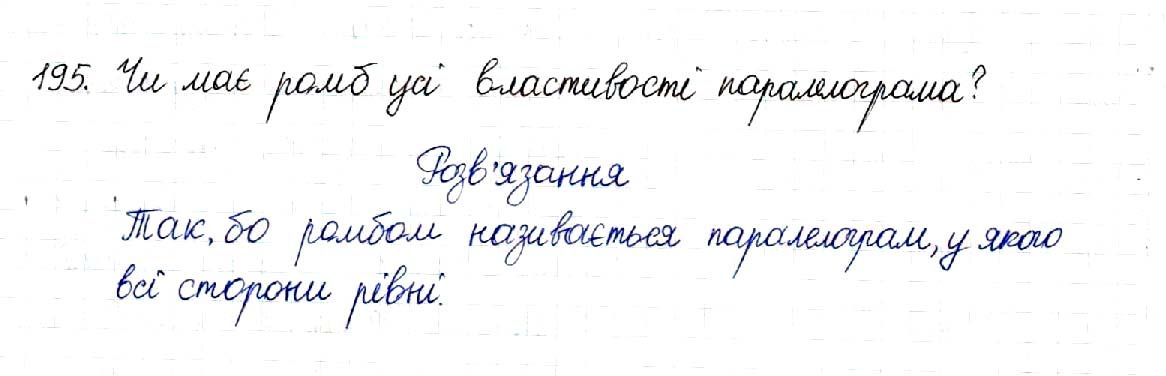 195. Чи має ромб усі властивості паралелограма?
Розв'язання
Так, бо ромбом називається паралелограм, у якого
всі сторони рівні.